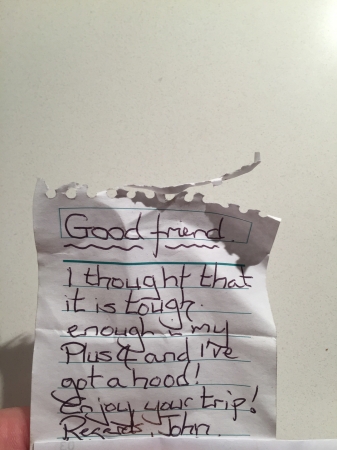 Good friend.
I thought that
it is tough
enough in my
Plus 4 and I've
got a hood!
Enjoy your trip!
Regards, John.